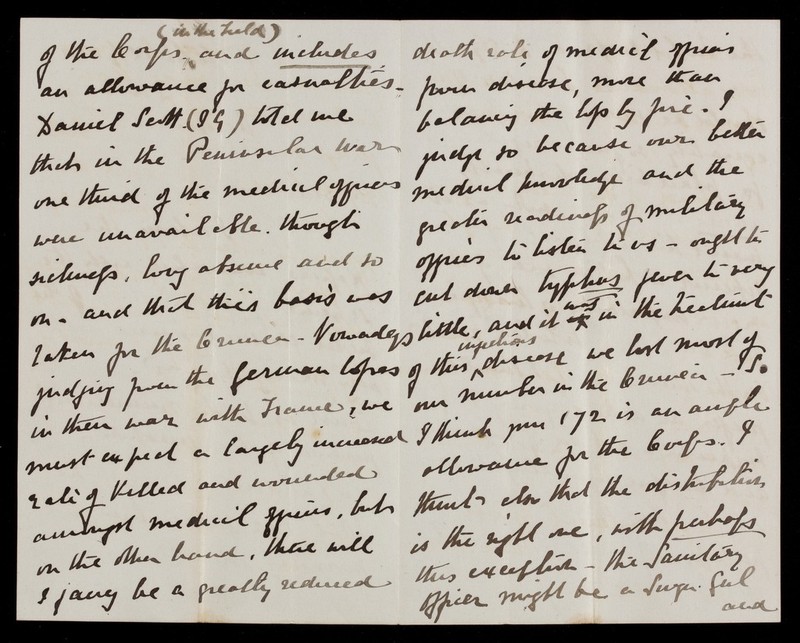 (in the field)
of the Corps and includes
an allowance for casualties -
Daniel Scott (IG) told me
that in the Peninsular War
one third of the medical officers
were unavailable through
sickness, long absence and so
on - and that this basis was
taken for the Crimea - Nowadays
judging from the German losses
in their war with France, we
must expect a largely increased
rate of killed and wounded
amongst medical officers, but
on the other hand, there will
I fancy be a greatly reduced
death rate of medical officers
from disease, more than
balancing the loss by fire. I
judge so because our better
medical knowledge and the
greater readiness of military
officers to listen to us - ought to
cut down typhus fever to very
little, and it was in the treatment
of this infectious disease we lost most of
our number in the Crimea - So
I think your 172 is an ample
allowance for the Corps. I
think also that the distribution
is the right one, with perhaps
this exception - the Sanitary
Officer might be a Surgn Genl
and